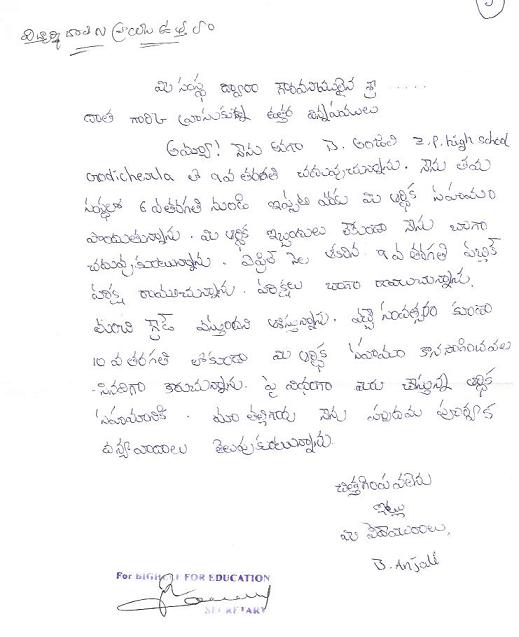 విద్యార్థి దాత కి వ్రాయు ఉత్తరం
మీ సంస్థ ద్వారా గౌరవనీయులైన శ్రీ ......
దాత గారికి వ్రాసుకున్న ఉత్తర విన్నపములు
అయ్యా! నేను అనగా B. అంజలి Z.P. high school
లో 9వ తరగతి చదువుచున్నాను. నేను తమ
సంస్థలో 6వ తరగతి నుండి ఇప్పటి వరకు మీ ఆర్థిక సహాయం
పొందుతున్నాను. మీ ఆర్థిక ఇబ్బందులు లేకుండా నేను బాగా
చదువుకుంటున్నాను. ఏప్రిల్ నెల 9వ తరగతి పబ్లిక్
పరీక్ష రాయుచున్నాను. పరీక్షలు బాగా రాయుచున్నాను,
మంచి గ్రేడ్ వస్తుందని ఆశిస్తున్నాను. వచ్చే సంవత్సరం కూడా
10వ తరగతి లో కూడా మీ ఆర్థిక సహాయం కొనసాగించవల
-సినదిగా కోరుచున్నాను. పై విధంగా మీరు చేస్తున్న ఆర్థిక
సహాయానికి. మా తల్లిగారు నేను హృదయ పూర్వక
ధన్యవాదాలు తెలుపుకుంటున్నాను.
చిత్తగింపవలెను
ఇట్లు
మీ విధేయురాలు,
B. Anjali
For FOR EDUCATION
SECRETARY